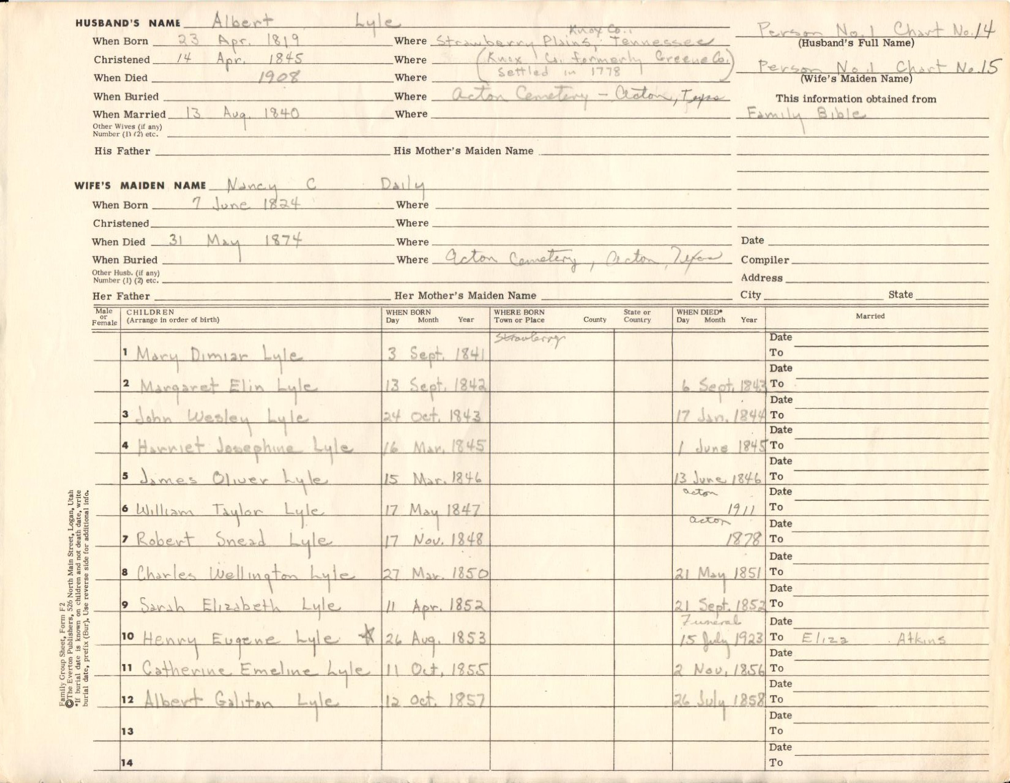 HUSBAND'S NAME Albert Lyle
Person No. 1 Chart No. 14
(Husband's Full Name)
When Born 23 Apr. 1819 Where Strawberry Plains, Knox Co., Tennessee
Christened 14 Apr. 1845 Where (Knox Co. formerly Greene Co.
When Died 1908 Where Settled in 1778)
Person No. 1 Chart No. 15
(Wife's Maiden Name)
When Buried Where Acton Cemetery – Acton, Texas
This information obtained from
When Married 13 Aug. 1840 Where
Family Bible
Other Wives (if any)
Number (1) (2) etc.
His Father His Mother's Maiden Name
WIFE'S MAIDEN NAME Nancy C Daily
When Born 7 June 1824 Where
Christened Where
When Died 31 May 1874 Where
Date
When Buried Where Acton Cemetery, Acton, Texas
Compiler
Other Husb. (if any)
Number (1) (2) etc.
Address
Her Father Her Mother's Maiden Name
City State
Male or Female
CHILDREN
(Arrange in order of birth)
WHEN BORN
Day Month Year
WHERE BORN
Town or Place County State or Country
WHEN DIED*
Day Month Year
Married
Strawberry
Date
1 Mary Dimiar Lyle 3 Sept. 1841 To
Date
2 Margaret Elin Lyle 13 Sept. 1842 6 Sept. 1843 To
Date
3 John Wesley Lyle 24 Oct. 1843 17 Jan. 1844 To
Date
4 Harriet Josephine Lyle 16 Mar. 1845 1 June 1845 To
Date
5 James Oliver Lyle 15 Mar. 1846 13 June 1846 To
Acton Date
6 William Taylor Lyle 17 May 1847 1911 To
Acton Date
7 Robert Snead Lyle 17 Nov. 1848 1878 To
Date
8 Charles Wellington Lyle 27 Mar. 1850 21 May 1851 To
Date
9 Sarah Elizabeth Lyle 11 Apr. 1852 21 Sept. 1852 To
Funeral Date
10 Henry Eugene Lyle ☆ 26 Aug. 1853 15 July 1923 To Eliza Atkins
Date
11 Catherine Emeline Lyle 11 Oct. 1855 2 Nov. 1856 To
Date
12 Albert Galitan Lyle 12 Oct. 1857 26 July 1858 To
Date
13 To
Date
14 To
Family Group Sheet, Form F2
©The Everton Publishers, 526 North Main Street, Logan, Utah
*If burial date is known on children and not death date, write
burial date, prefix (Bur). Use reverse side for additional info.